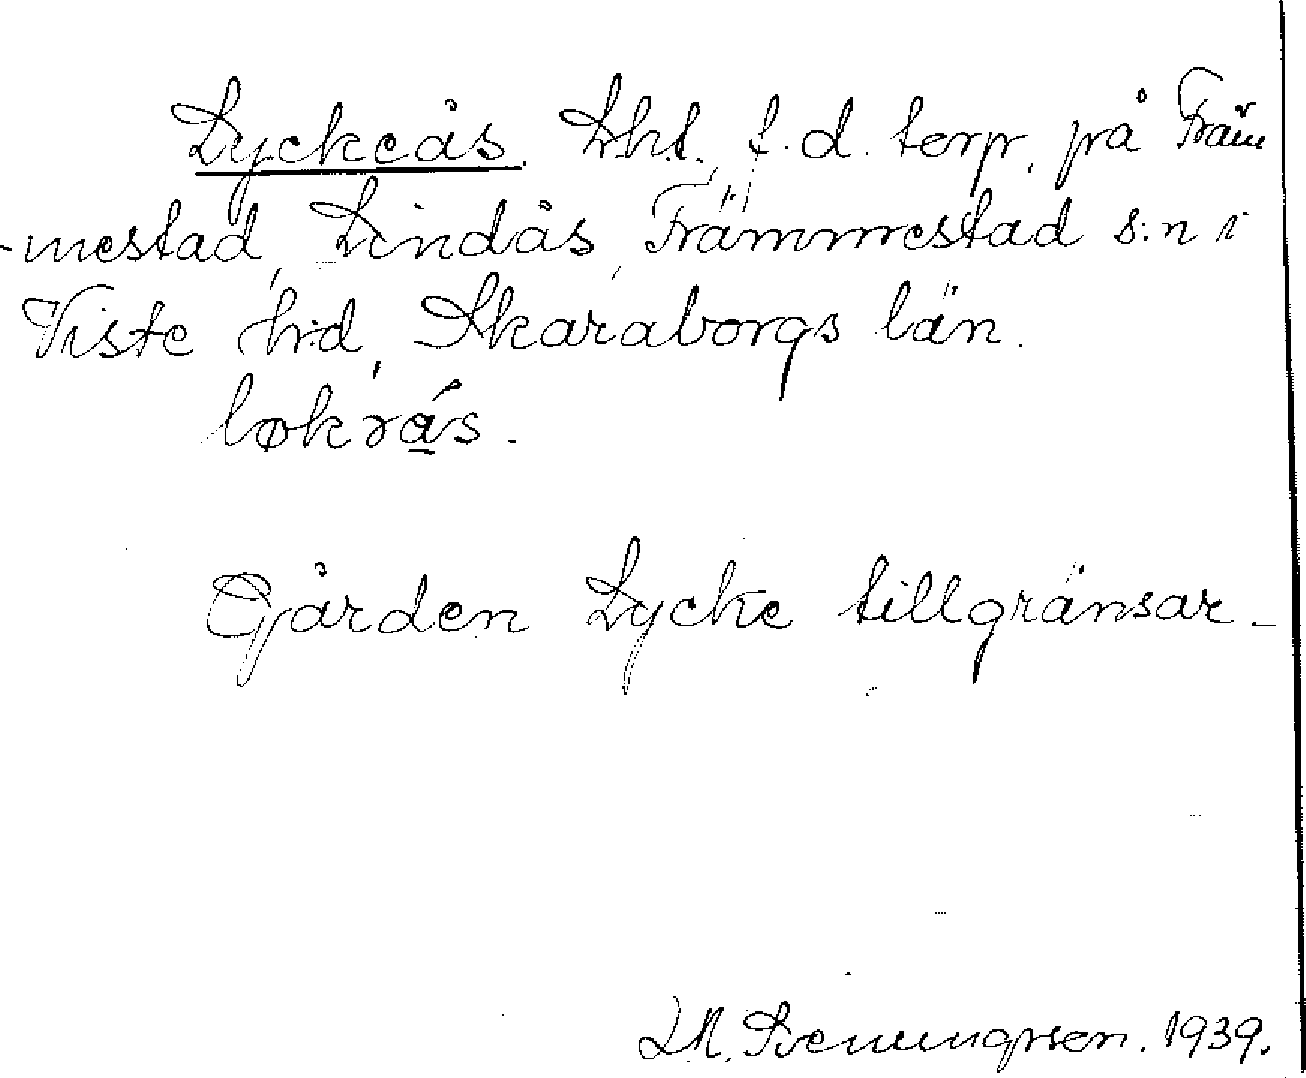 Lyckeås. Lht., f.d. torp, på Främ
-mestad, Lindås, Främmestad s:n i
Viste h:d, Skaraborgs län.
løkrås.
Gården Lycke tillgränsar.
1939.